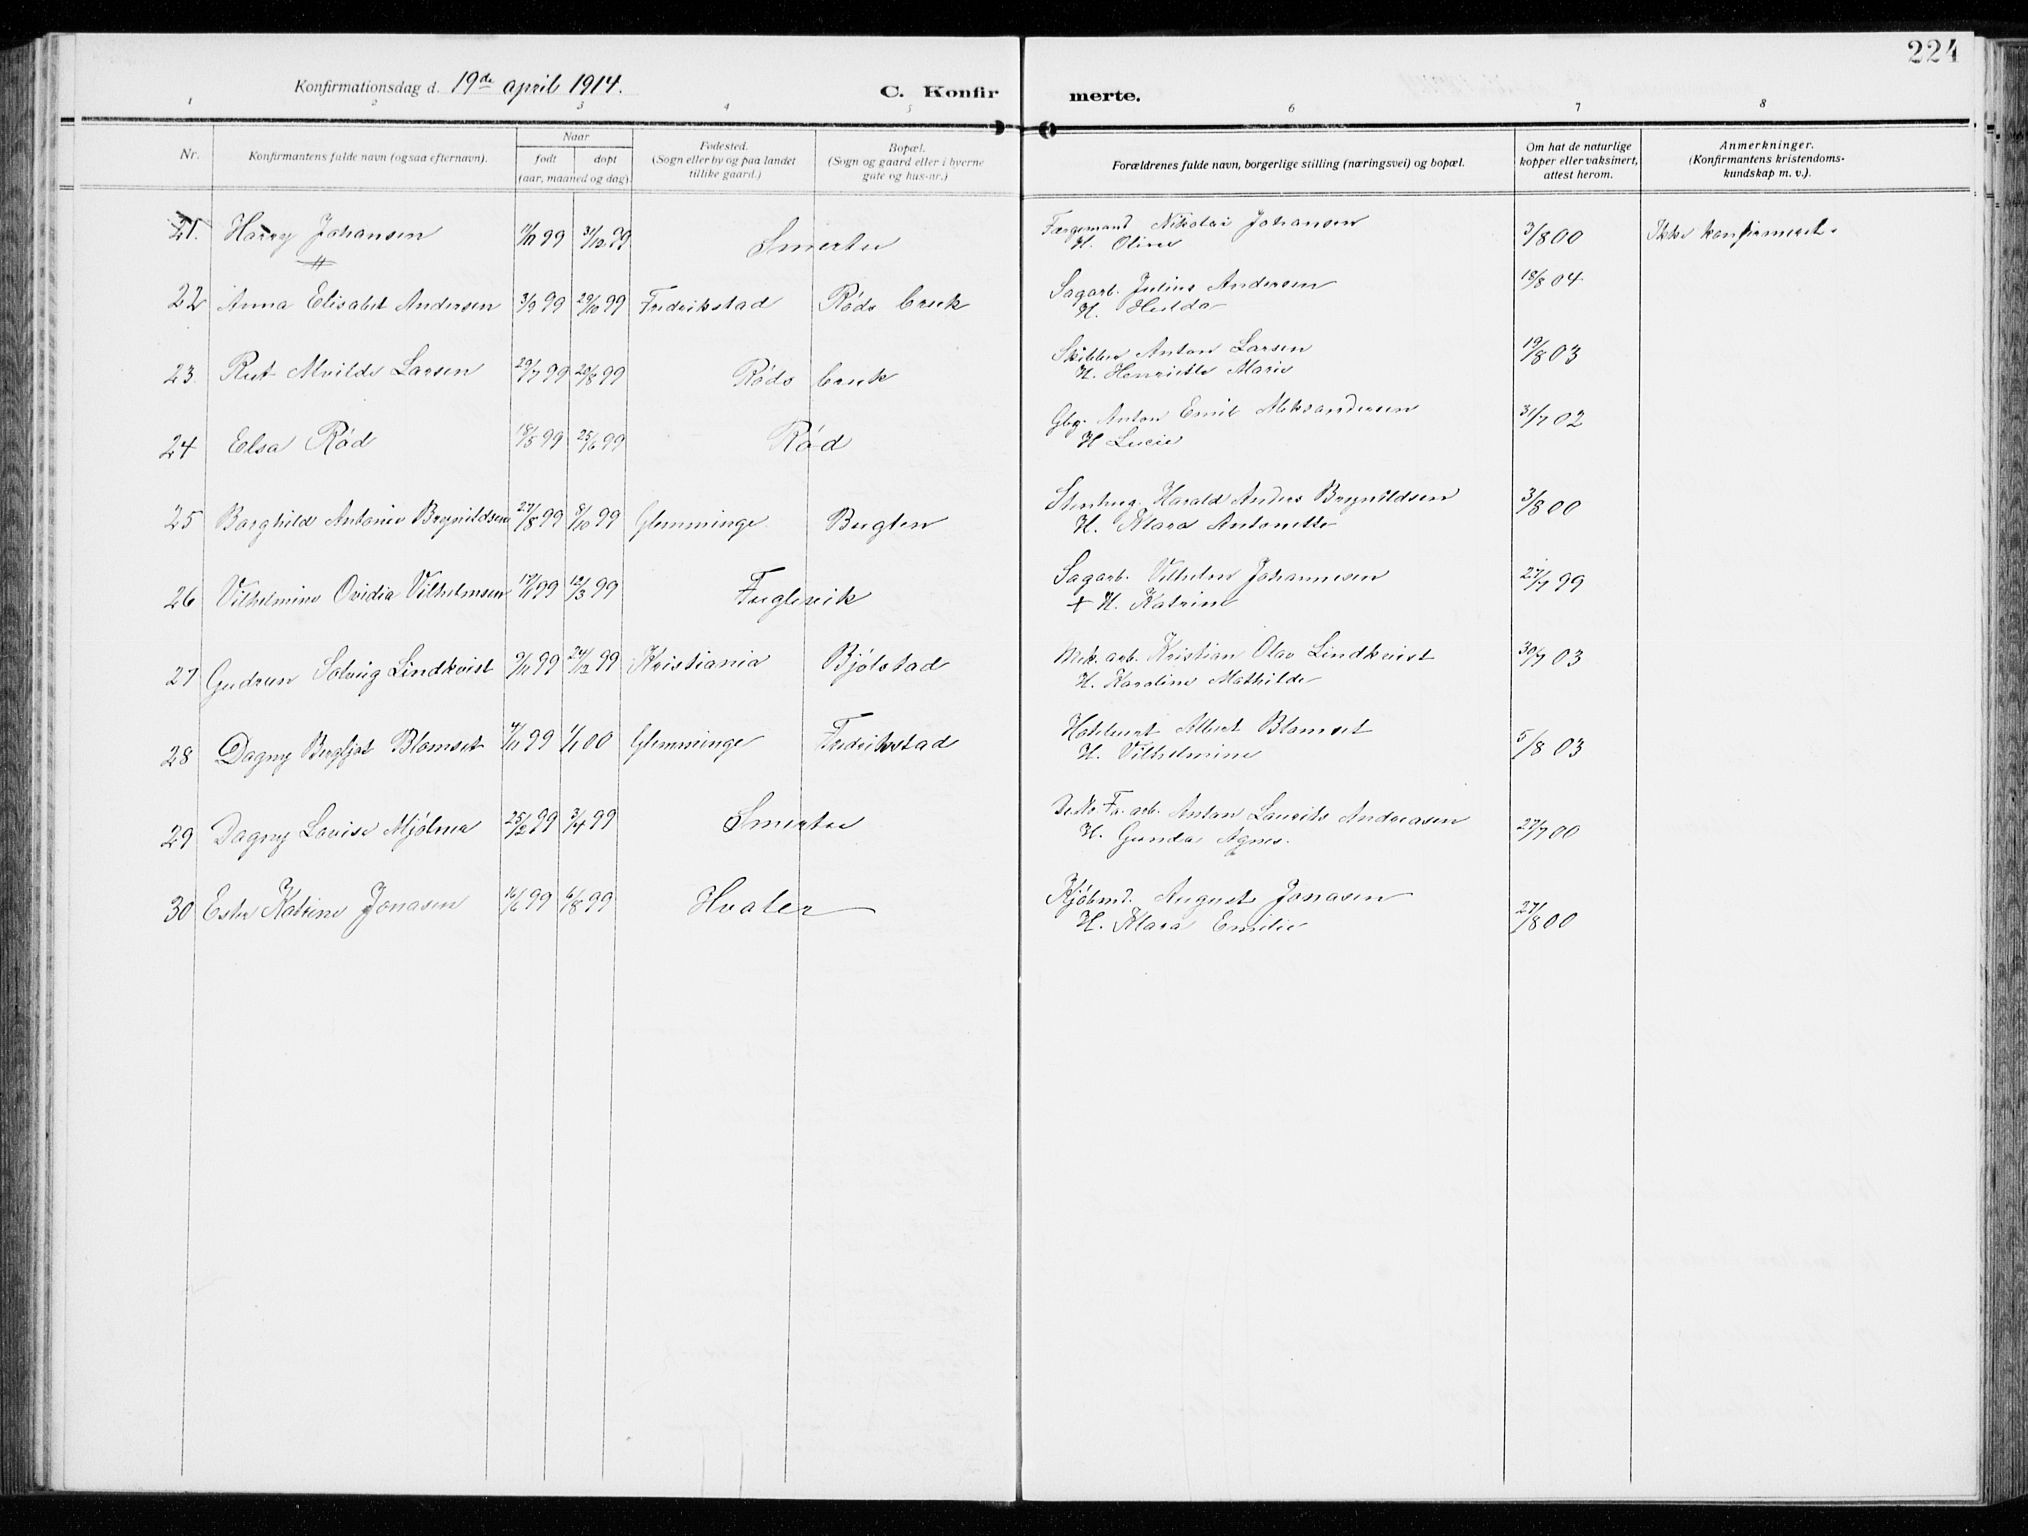 224
Konfirmationsdag d. 19de april 1914.
C. Konfirmerte.
1 2 3 4 5 6 7 8
Nr. Konfirmantens fulde navn (ogsaa efternavn). Naar født dopt (aar, maaned og dag). Fødested. (Sogn eller by og paa landet tillike gaard.) Bopæl. (Sogn og gaard eller i byerne gate og hus-nr.) Forældrenes fulde navn, borgerlige stilling (næringsvei) og bopæl. Om hat de naturlige kopper eller vaksinert, attest herom. Anmerkninger. (Konfirmantens kristendomskundskap m. v.).
21. Harry Johansen 99 31/12 99 Smertu Færgemand Nikolai Johansen 3/8 00 Ikke konfirmert.
H. Oline
22 Anna Elisabet Andersen 3/9 99 29/10 99 Fredrikstad Røds bruk Sagarb. Julius Andersen 18/8 04
H. Hulda
23 Rut Alvilde Larsen 29/7 99 20/8 99 Røds bruk Skibber Anton Larsen 19/8 03
H. Henriette Marie
24 Elsa Rød 18/5 99 25/6 99 Rød Gbg. Anton Emil Aleksandersen 31/7 02
H Lucie
25 Borghild Antonie Brynildsen 27/8 99 8/10 99 Glemminge Bugten Stenhug. Harald Anders Brynildsen 3/8 00
H. Klara Antonette
26 Vilhelmine Ovidia Vilhelmsen 99 12/3 99 Fuglevik Sagarb. Vilhelm Johannesen 27/7 99
+ H. Katrine
27 Gudrun Solveig Lindkvist 9/11 99 24/12 99 Kristiania Bjølstad Mek. arb. Kristian Olav Lindkvist 30/7 03
H. Karoline Mathilde
28 Dagny Bergljot Blomset 4/11 99 1/1 00 Glemminge Fredrikstad Albert Blomset 5/8 03
H. Vilhelmine
29 Dagny Lovise Mjølner 25/2 99 3/4 99 Smertu Fa. arb. Anton Laurits Andreasen 27/7 00
H. Gunda Agnes.
30 Ester Katrine Jonasen 16/6 99 6/8 99 Hvaler Kjøbmd. August Jonasen 27/8 00
H. Klara Emilie